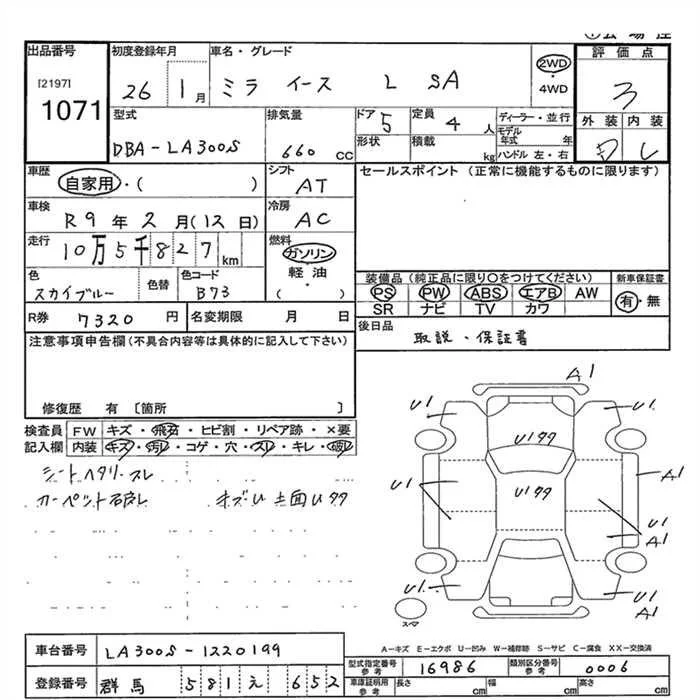 出品番号 初度登録年月 車名・グレード 評価点
[2197] 1071 26 1月 ミラ イース L SA 2WD・4WD 3
外装 内装
型式 排気量 ドア 定員 ディーラー・並行
DBA-LA300S 660 CC 5 4人 モデル年式 年
形状 積載 kg ハンドル 左・右
車歴 シフト セールスポイント(正常に機能するものに限ります)
自家用・( ) AT
車検 冷房
R9年2月(12日) AC
走行 燃料
10万5千827km ガソリン・軽油( )
色 色替 色コード 装備品(純正品に限り○をつけてください) 新車保証書
スカイブルー B73 PS PW ABS エアB AW 有・無
SR ナビ TV カワ
R券 7320円 名変期限 月 日 後日品 取説・保証書
注意事項申告欄(不具合内容等は具体的に記入して下さい)
修復歴 有 〔箇所 〕
検査員 FW キズ・飛石・ヒビ割・リペア跡・×要
記入欄 内装 キズ・汚レ・コゲ・穴・スレ・キレ・破レ
シートヘタリ・スレ
A1
U1 U1
U177
U1 U177 A1
U1
A1
U1 U1
A1
スペア
A-キズ E-エクボ U-凹み W-補修跡 S-サビ C-腐食 XX-交換済
車台番号 LA300S-1220199 型式指定番号 参考 16986 類別区分番号 参考 0006
登録番号 群馬 581 え 652 車庫証明用 参考 長さ cm 幅 cm 高さ cm